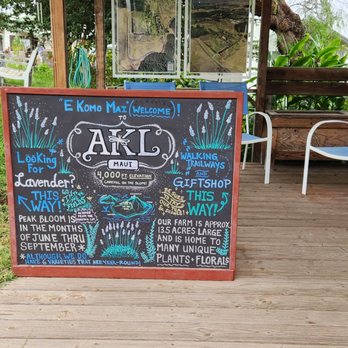 'E Komo Mai (Welcome)!
TO
AKL
MAUI
4,000 FT. ELEVATION
Looking
For
Lavender?
THIS
WAY!
PEAK BLOOM IS
IN THE MONTHS
OF JUNE THRU
SEPTEMBER*
*ALTHOUGH WE DO
HAVE 4 VARIETIES THAT ARE YEAR-ROUND!
WALKING
TRAILWAYS
AND
GIFTSHOP
THIS
WAY!
OUR FARM IS APPROX.
13.5 ACRES LARGE
AND IS HOME TO
MANY UNIQUE
PLANTS + FLORALS